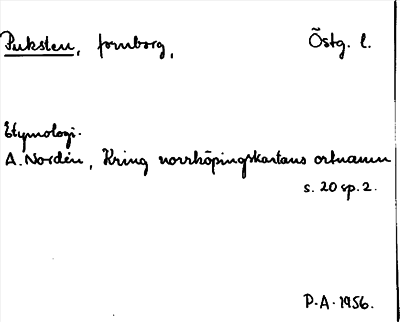 Puksten, fornborg, Östg. l.
Etymologi.
A. Nordén, Kring norrköpingskartans ortnamn
s. 20 sp. 2.
P.A. 1956.